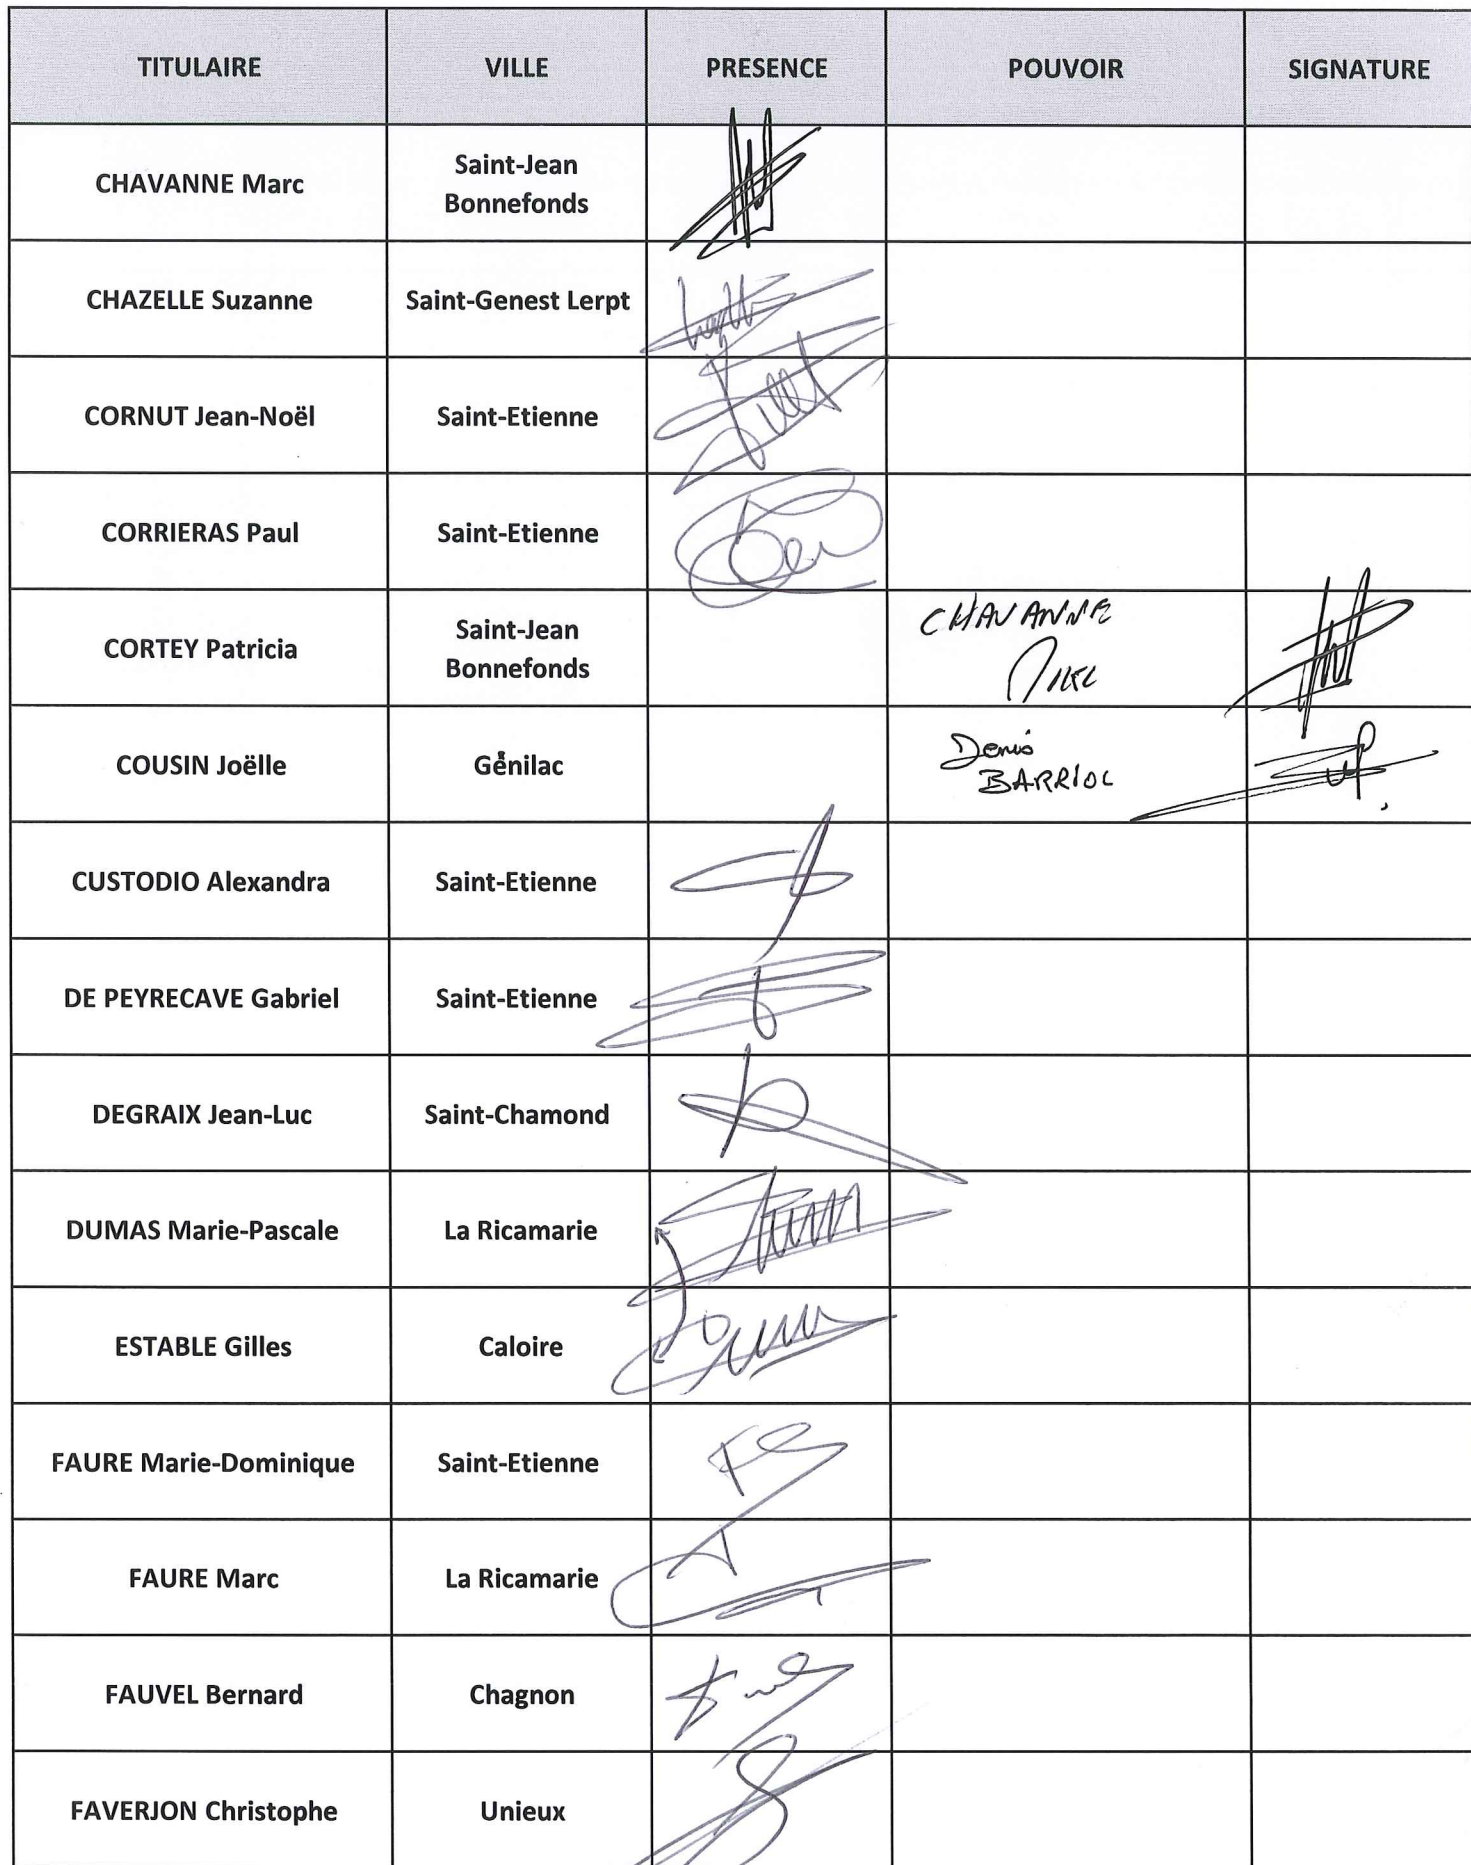 TITULAIRE VILLE PRESENCE POUVOIR SIGNATURE
CHAVANNE Marc Saint-Jean
Bonnefonds
CHAZELLE Suzanne Saint-Genest Lerpt
CORNUT Jean-Noël Saint-Etienne
CORRIERAS Paul Saint-Etienne
CORTEY Patricia Saint-Jean
Bonnefonds
CHAVANNE
COUSIN Joëlle Génilac
Denis
BARRIOL
CUSTODIO Alexandra Saint-Etienne
DE PEYRECAVE Gabriel Saint-Etienne
DEGRAIX Jean-Luc Saint-Chamond
DUMAS Marie-Pascale La Ricamarie
ESTABLE Gilles Caloire
FAURE Marie-Dominique Saint-Etienne
FAURE Marc La Ricamarie
FAUVEL Bernard Chagnon
FAVERJON Christophe Unieux